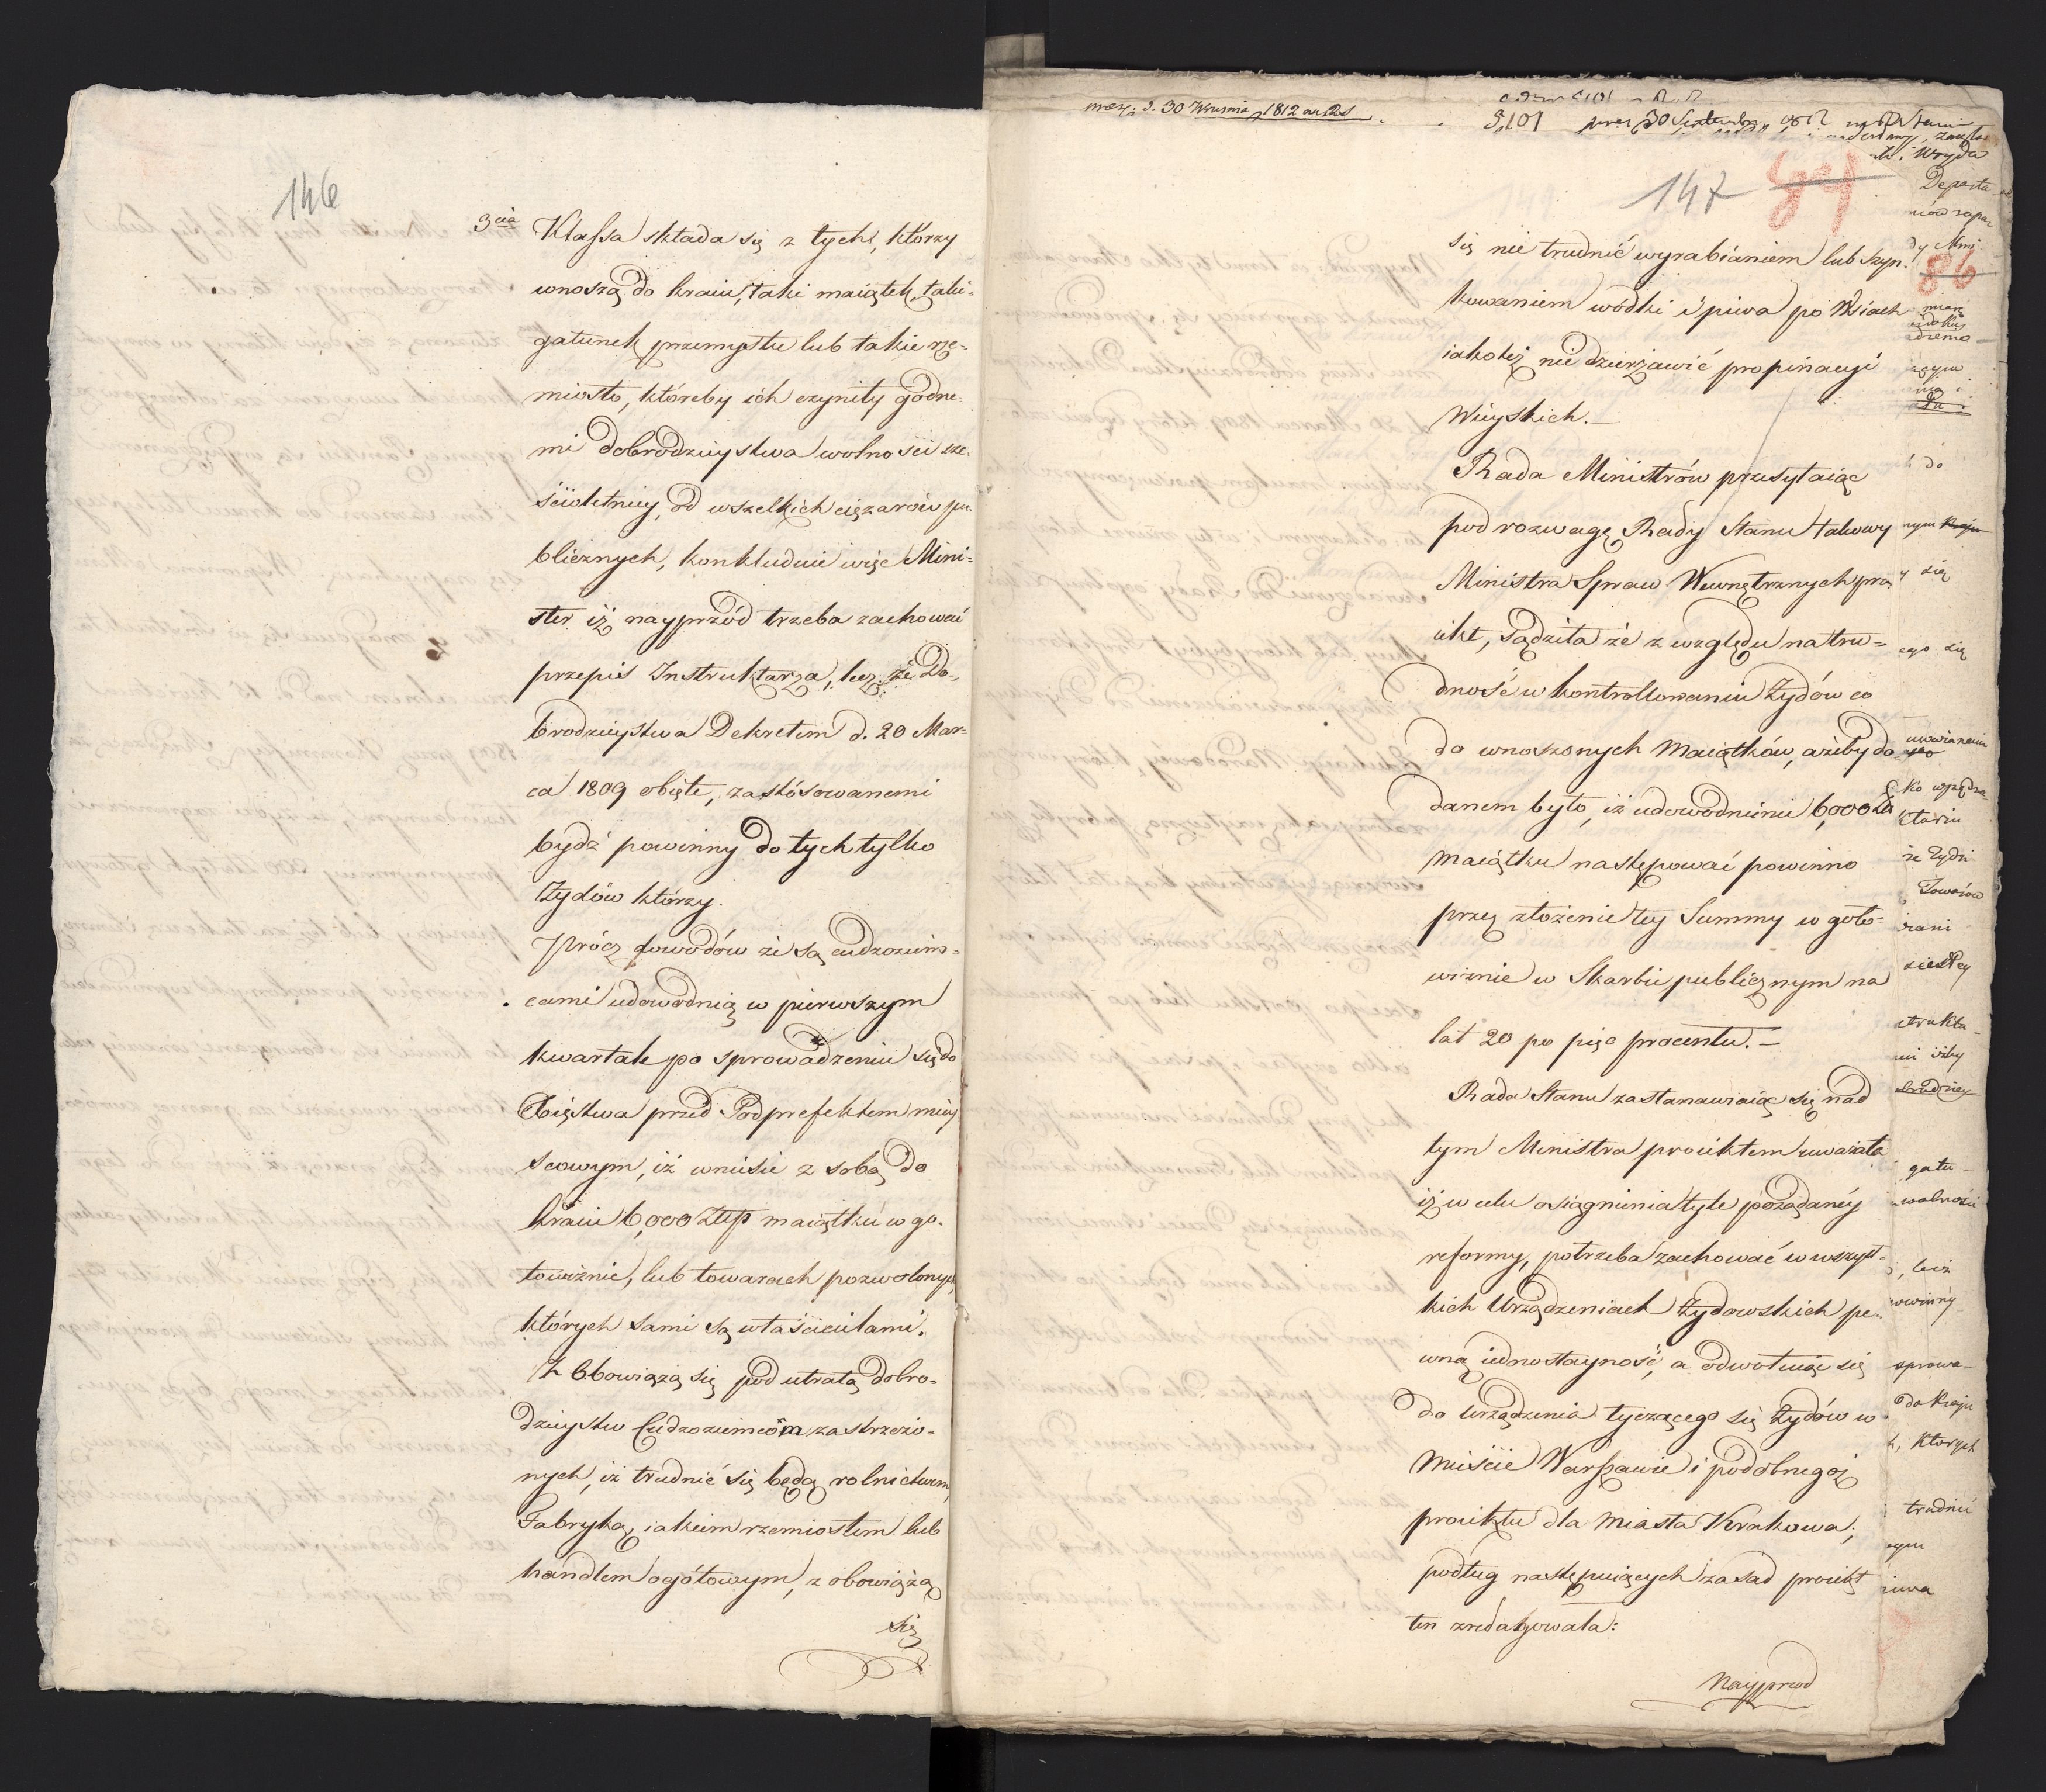 146
3cia Klassa składa się z tych, którzy
wnoszą do kraiu, taki maiątek, taki
gatunek przemysłu lub takie rze-
miosło, któreby ich czyniły godne-
mi dobrodzieystwa wolności sze-
ścioletniey, od wszelkich ciężarów pu-
blicznych, konkluduie więc Mini-
ster iż nayprzód trzeba zachować
przepis Instruktarza, lecz że Do-
brodzieystwa Dekretem d. 20 Mar-
ca 1809 obięte, zastósowanemi
bydź powinny do tych tylko
Żydów którzy.
Prócz dowodów że są cudzoziem-
cami udowodnią w pierwszym
kwartale po sprowadzeniu się do
Xięstwa przed Podprefektem miey
scowym, iż wnieśie z sobą do
kraiu 6,000 Złłp maiątku w go-
towiźnie, lub towarach pozwolonych,
których sami są właścicielami.
Z Obowiążą się pod utratą dobro-
dzieystw Cudzoziemcóm zastrzeżo-
nych, iż trudnić się będą rolnictwem,
Fabryką, iakiem rzemiosłem lub
handlem ogółowym, z obowiążą
się
30 Września 1812
5,101
147
84
86
się nie trudnić wyrabianiem lub szyn-
kowaniem wódki i piwa po Wsiach
iakoteż nie dzierżawić propinacyi
Wieyskich.
Rada Ministrów przesyłaiąc
pod rozwagę Rady Stanu takowy
Ministra Spraw Wewnętrznych pro
iekt, sądziła że z względu na tru-
dność w kontrollowaniu Żydów co
do wnoszonych Maiątków, ażeby do-
danem było, iż udowodnieniu 6,000 Zł
maiątku następować powinno
przez złożenie tey Summy w goto-
wiźnie w Skarbie publicznym na
lat 20 po pięć procentu.
Rada Stanu zastanawiaiąc się nad
tym Ministra proiektem uważała
iż w celu osiągnienia tyle pożądaney
reformy, potrzeba zachować w wszyst-
kich Urządzeniach Żydowskich pe-
wną iednostayność, a odwołuiąc się
do urządzenia tyczącego się Żydów w
mieście Warszawie i podobnegoż
proiektu dla miasta Krakowa;
podług następuiących zasad proiekt
ten zredagowała:
Nayprzod